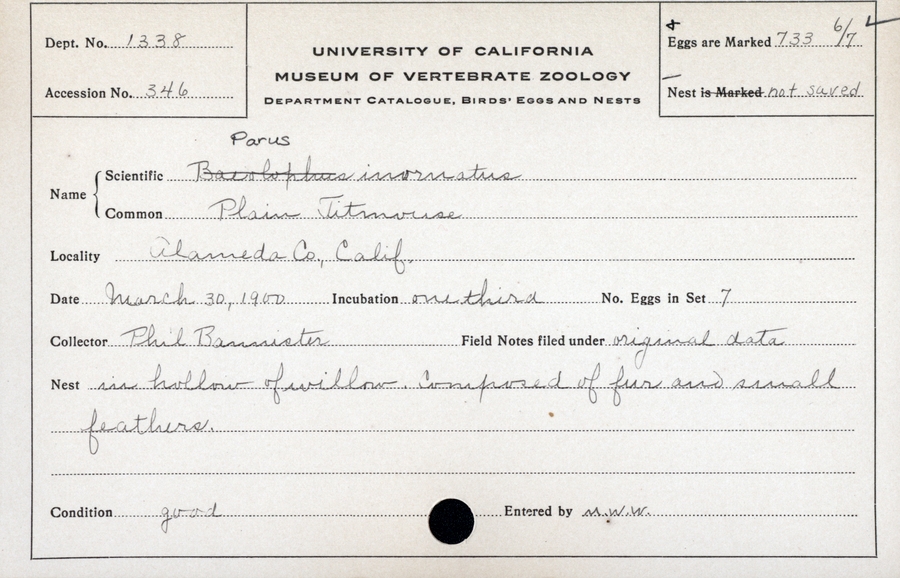 Dept. No. 1338
Accession No. 346
UNIVERSITY OF CALIFORNIA
MUSEUM OF VERTEBRATE ZOOLOGY
DEPARTMENT CATALOGUE, BIRDS' EGGS AND NESTS
Eggs are Marked 733 6/7
Nest is Marked not saved
Parus
Name
Scientific Baeolophus inornatus
Common Plain Titmouse
Locality Alameda Co., Calif.
Date March 30, 1900 Incubation one third No. Eggs in Set 7
Collector Phil Bannister Field Notes filed under original data
Nest in hollow of willow. Composed of fur and small
feathers.
Condition good Entered by M.W.W.